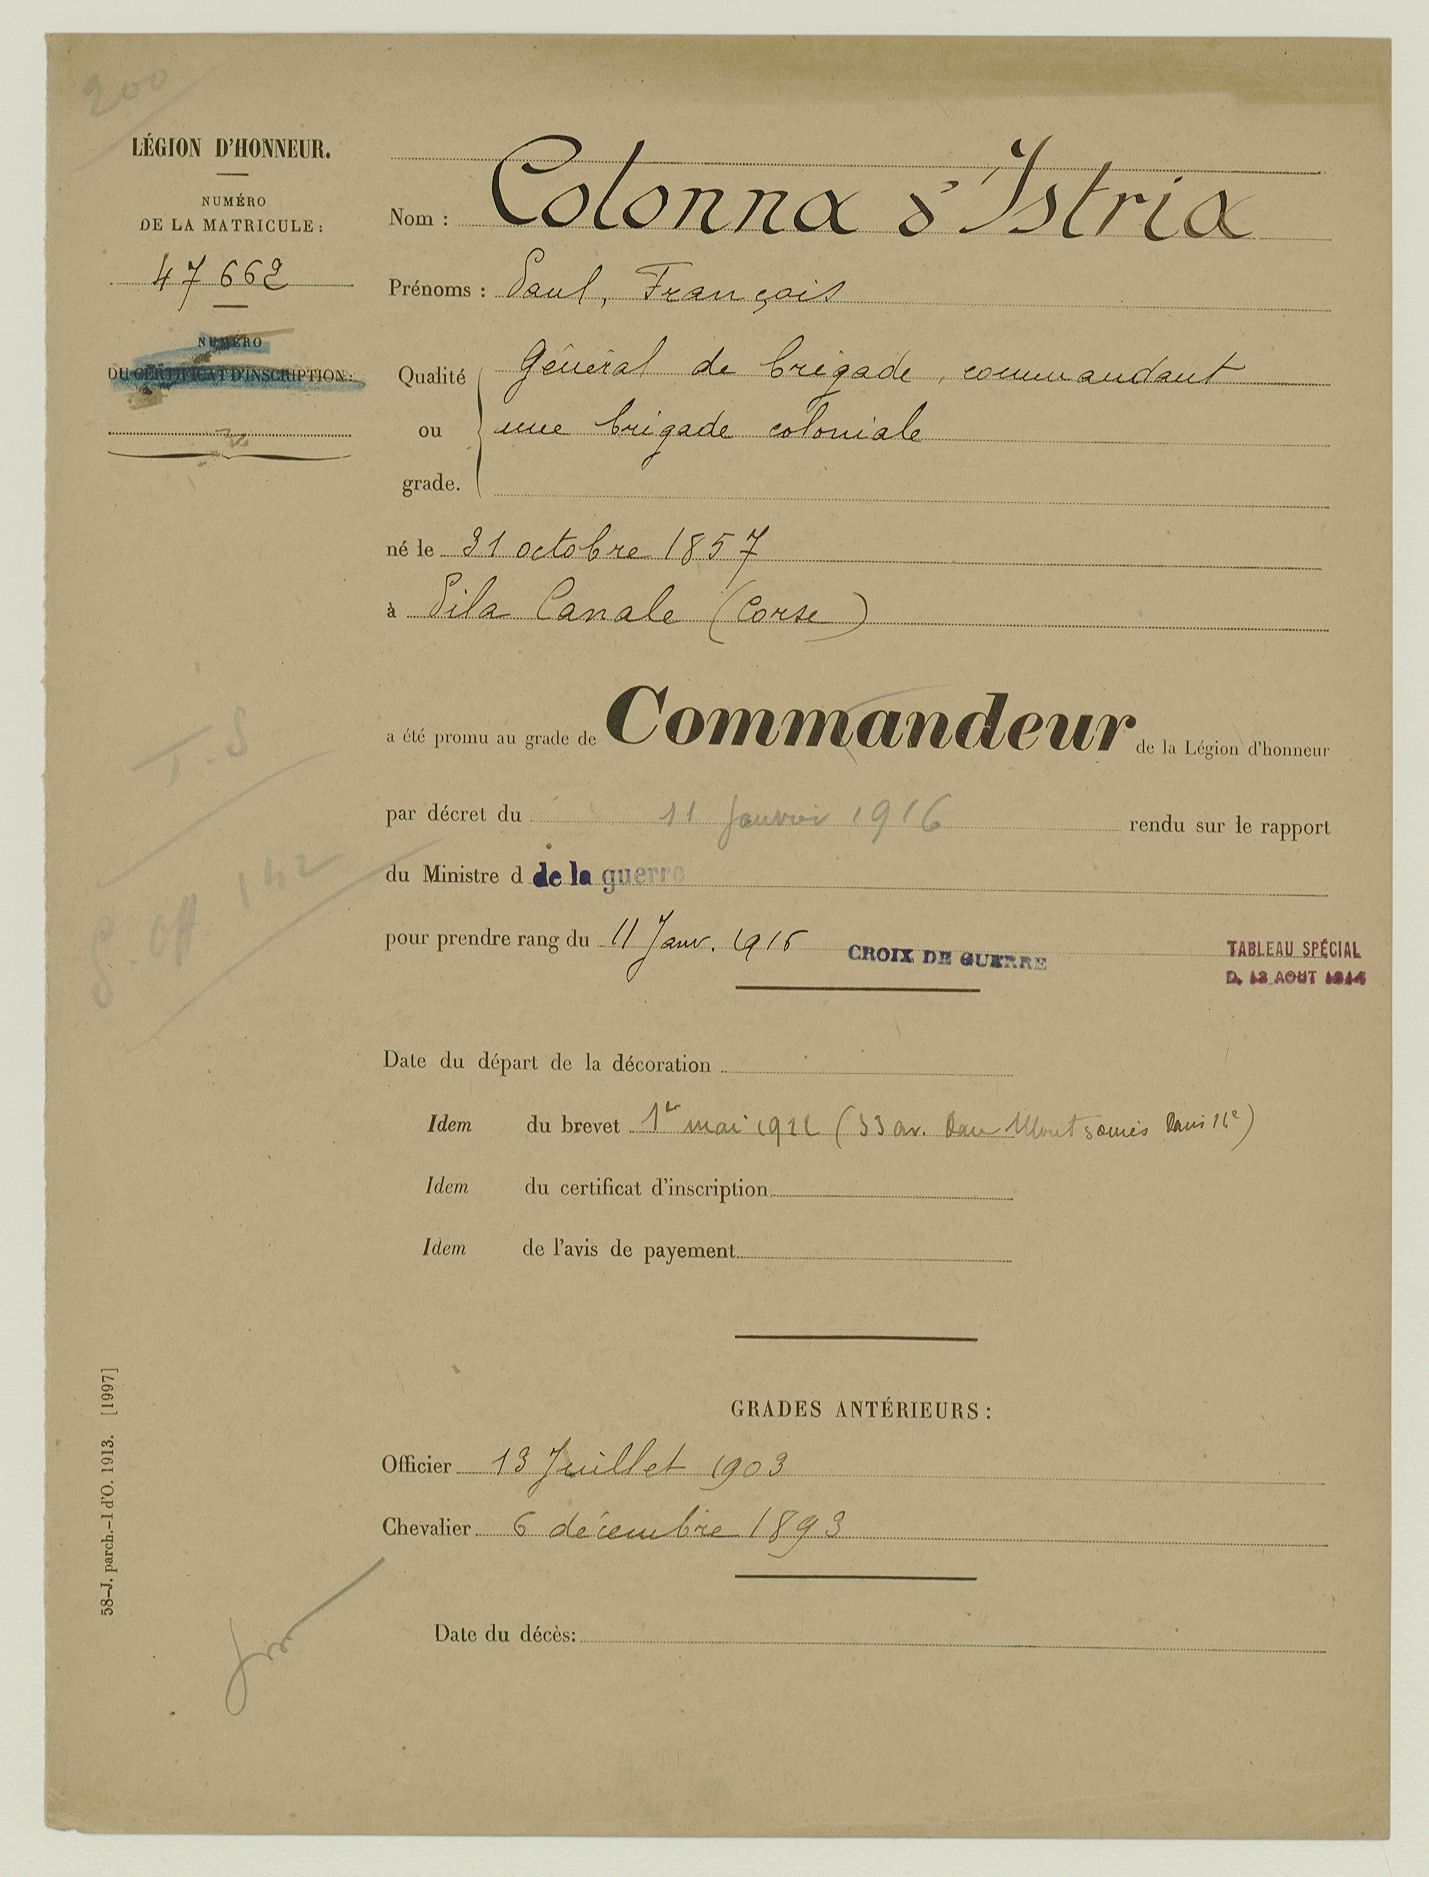 200
LÉGION D'HONNEUR.
NUMÉRO
DE LA MATRICULE :
47662
NUMÉRO
DU CERTIFICAT D'INSCRIPTION :
Nom : Colonna d'Istria
Prénoms : Paul, François
Qualité ou grade. Général de brigade, commandant
une brigade coloniale
né le 31 octobre 1857
à Pila Canale (Corse)
a été promu au grade de Commandeur de la Légion d'honneur
par décret du 11 Janvier 1916 rendu sur le rapport
du Ministre d de la guerre
pour prendre rang du 11 Janv. 1916
CROIX DE GUERRE
TABLEAU SPÉCIAL
D. 13 AOUT 1914
T.S
Date du départ de la décoration
Idem du brevet 1er mai 1922 (33 av. Montsouris Paris 14e)
Idem du certificat d'inscription
Idem de l'avis de payement
GRADES ANTÉRIEURS :
Officier 13 Juillet 1903
Chevalier 6 décembre 1893
Date du décès:
58-J. parch.-1 d'O. 1913. [1997]